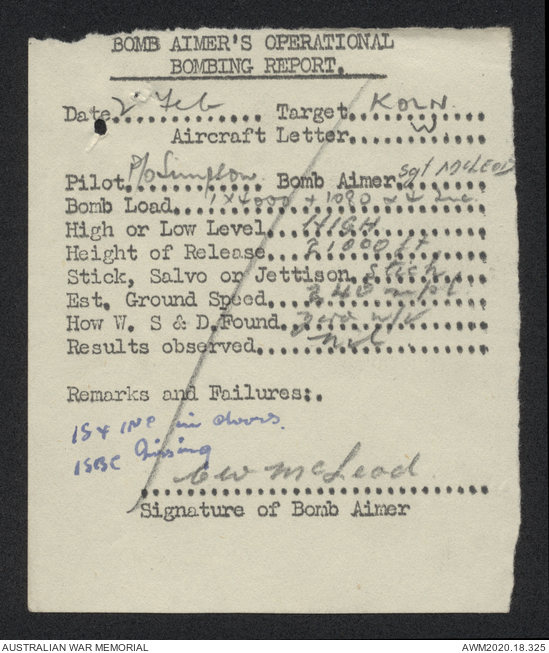 BOMB AIMER'S OPERATIONAL
BOMBING REPORT.
Date 2 Feb Target KOLN
Aircraft Letter W
Pilot P/O Simpson Bomb Aimer Sgt McLEOD
Bomb Load 1x4000 + 1080 x 4 Inc.
High or Low Level HIGH
Height of Release 21000 ft
Stick, Salvo or Jettison Stick
Est. Ground Speed 240 m/p/h
How W. S & D Found Zero w/v
Results observed nil
Remarks and Failures:.
15 4 INC in doors.
1 SBC
McLeod
Signature of Bomb Aimer
AUSTRALIAN WAR MEMORIAL
AWM2020.18.325